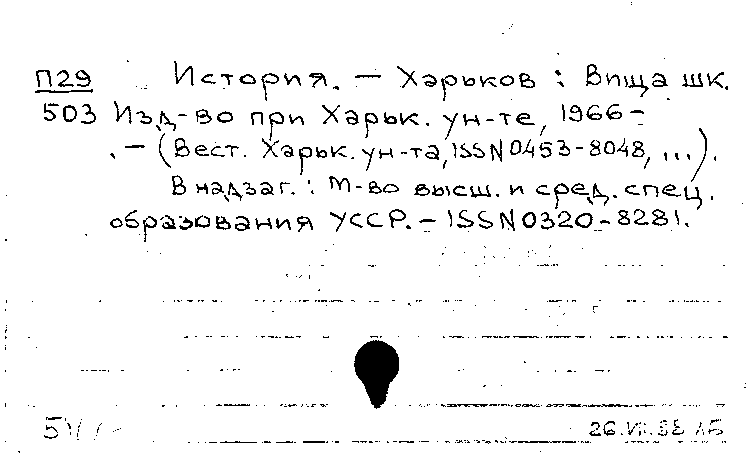 П29 История. – Харьков : Вища шк.
503 Изд-во при Харьк. ун-те, 1966 –
. – (Вест. Харьк. ун-та, ISSN 0453-8048, ...).
В надзаг. : М-во высш. и сред. спец.
образования УССР. – ISSN 0320-8281.